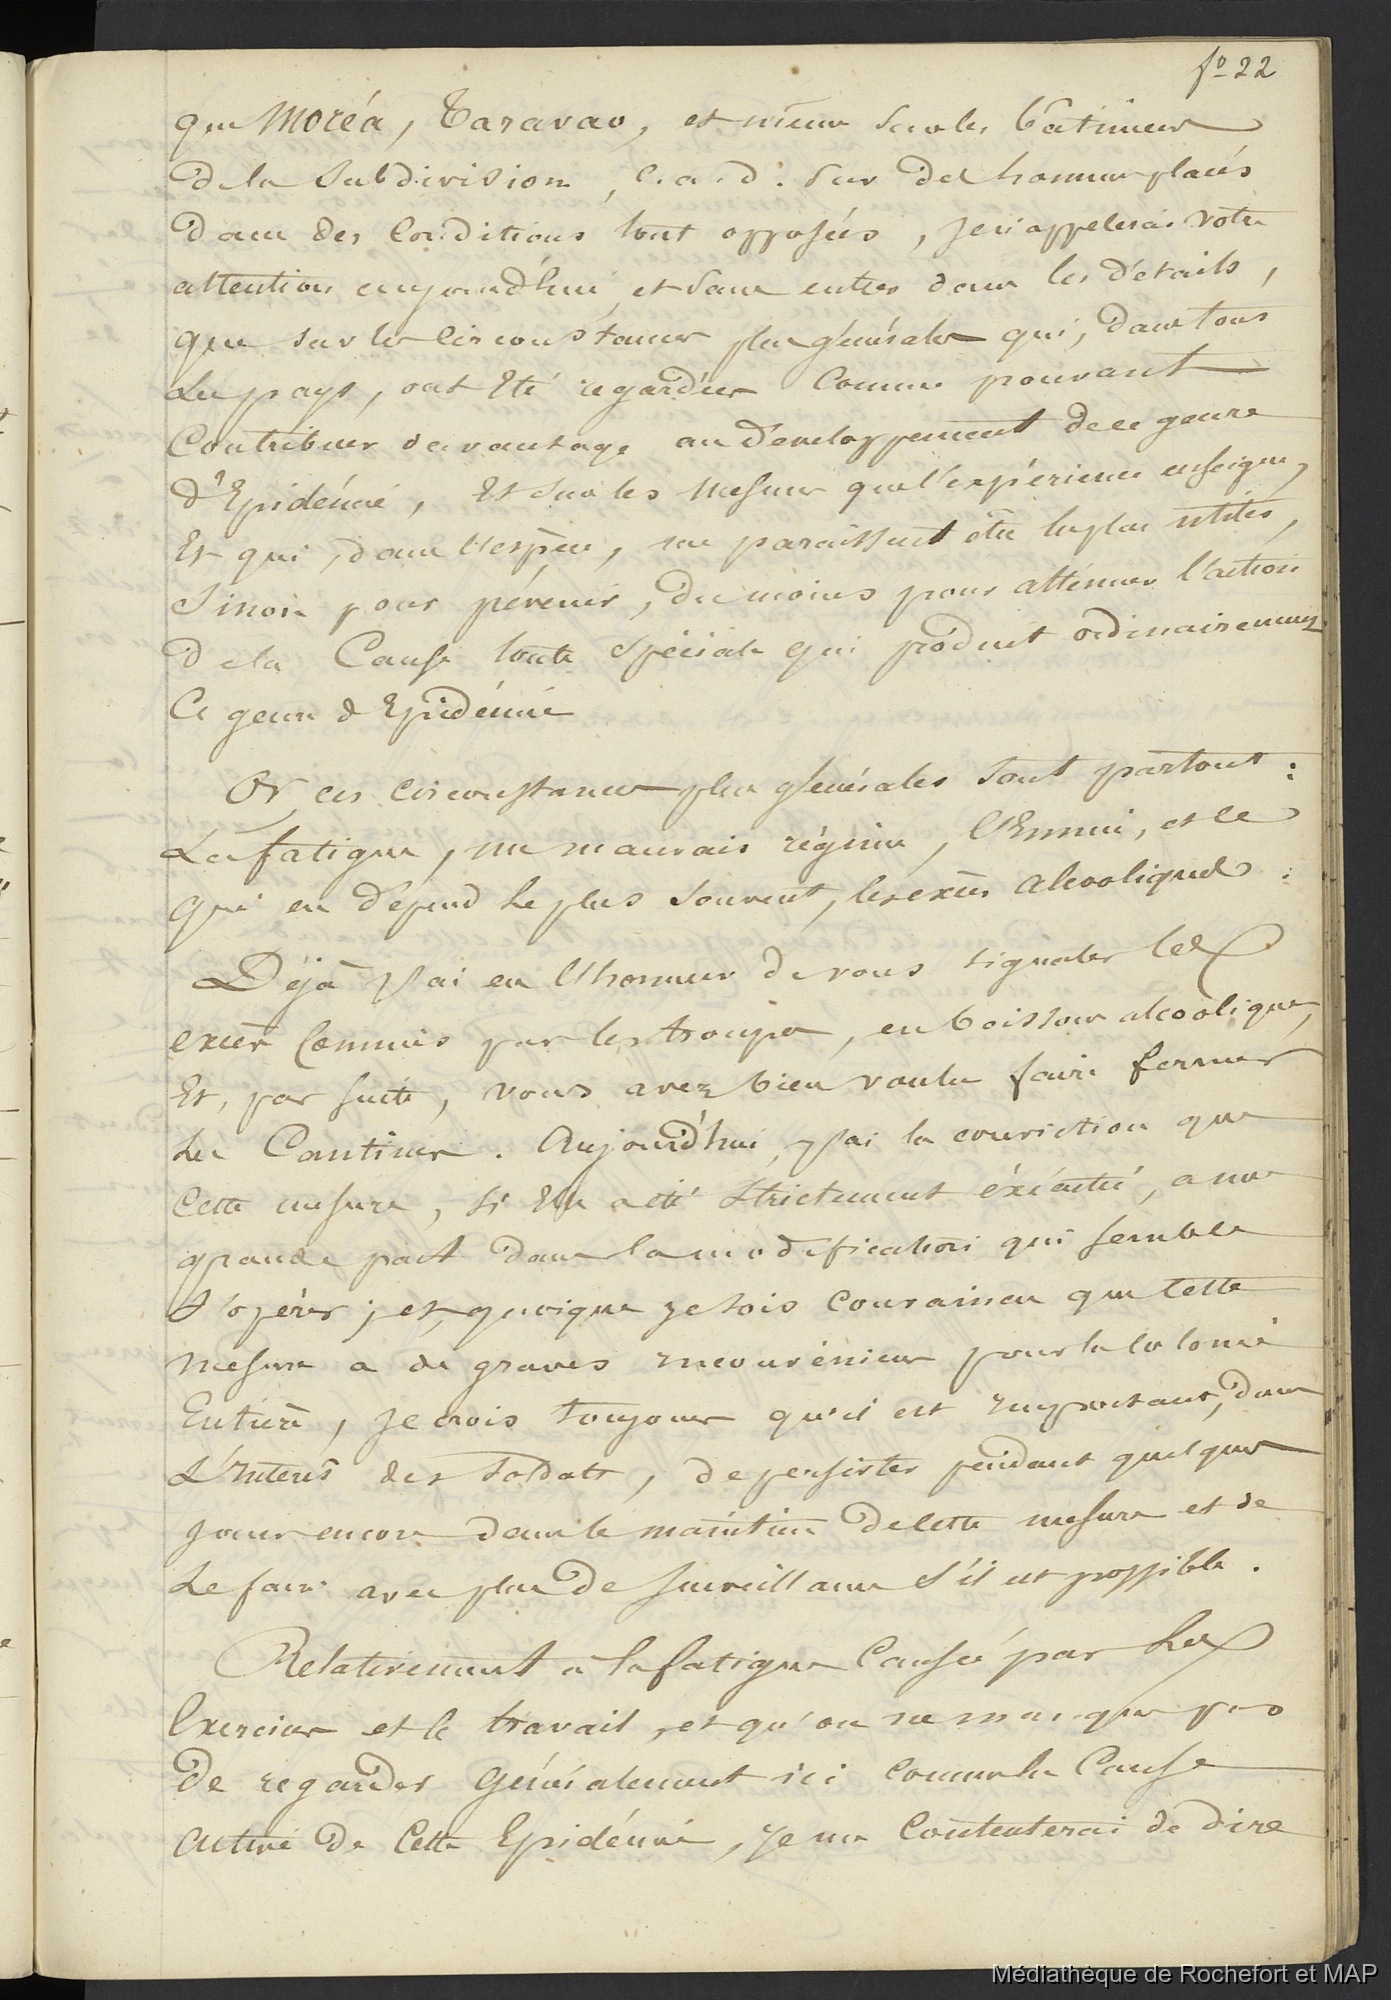 fo 22
que Moréa, Taravao, et même sur les bâtimens
de la Subdivision, c.a.d. sur des hommes placés
dans des Conditions tout opposées, je n'appelerai votre
attention aujourd'hui, et sans entrer dans les détails,
que sur les Circonstances plus générales qui, dans tous
Les pays, ont été regardées Comme pouvant
Contribuer davantage au développement de ce genre
d'Epidémie, Et sur les Mesures que l'expérience enseigne,
Et qui, dans l'espèce, me paraissent être les plus utiles,
Sinon pour pévenir, du moins pour atténuer l'action
de la Cause toute spéciale qui produit ordinairement
Ce genre d'Epidémie
Or ces circonstances plus générales sont partout :
La fatigue, un mauvais régime, l'Ennui, et ce
qui en dépend le plus souvent, les excès alcooliques :
Déjà j'ai eu l'honneur de vous signaler les
excès Commis par les troupes, en boissons alcooliques,
Et, par suite, vous avez bien voulu faire fermer
Les Cantines. Aujourd'hui, j'ai la conviction que
Cette mesure, si Elle a été strictement éxécutée, a une
grande part dans la modification qui semble
s'opérer ; et, quoique je sois Convaincu que cette
mesure a de graves inconvéniens pour la Colonie
Entière, je crois toujours qu'il est important, dans
L'Interêt des soldats, de persister pendant quelques
jours encore dans le maintien de cette mesure et de
Le faire avec plus de surveillance s'il est possible.
Relativement à la fatigue Causée par Les
Exercices et le travail, et qu'on ne manque pas
de regarder généralement ici comme la Cause
active de Cette Epidémie, je me Contenterai de dire
Médiathèque de Rochefort et MAP